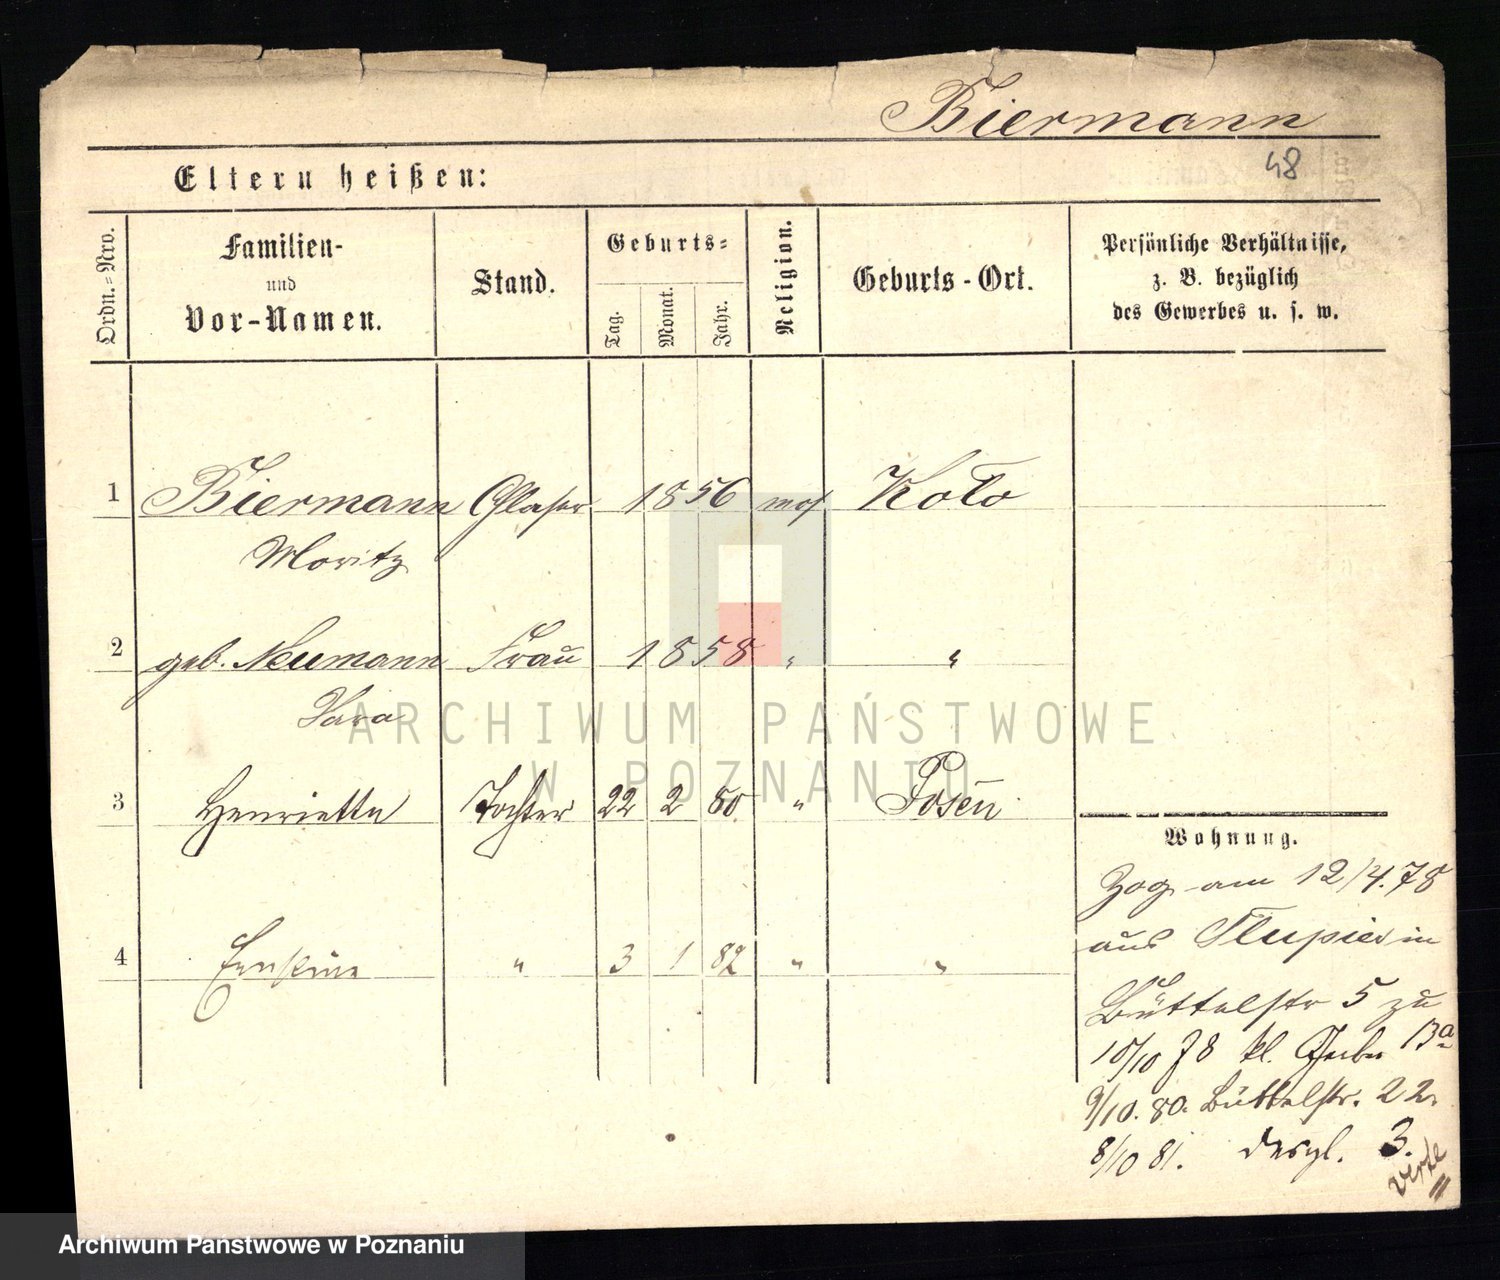 Biermann
48
Eltern heißen:
Ordn.=Nro.
Familien-
und
Vor-Namen.
Stand.
Geburts=
Tag.
Monat.
Jahr.
Religion.
Geburts-Ort.
Persönliche Verhältnisse,
z. B. bezüglich
des Gewerbes u. s. w.
1 Biermann Glaser 1856 mos Koło
Moritz
2 geb. Neumann Frau 1858 " "
Sara
3 Henriette Tochter 22 2 80 " Posen
4 Ernstine " 3 1 82 " "
Wohnung.
Zog am 12/4.78
aus Slupia in
Büttelstr 5 zu
10/10 78 kl. Gerber 13a
9/10. 80. Büttelstr. 22.
8/10 81. desgl. 3.
verte
ARCHIWUM PAŃSTWOWE
W POZNANIU
Archiwum Państwowe w Poznaniu